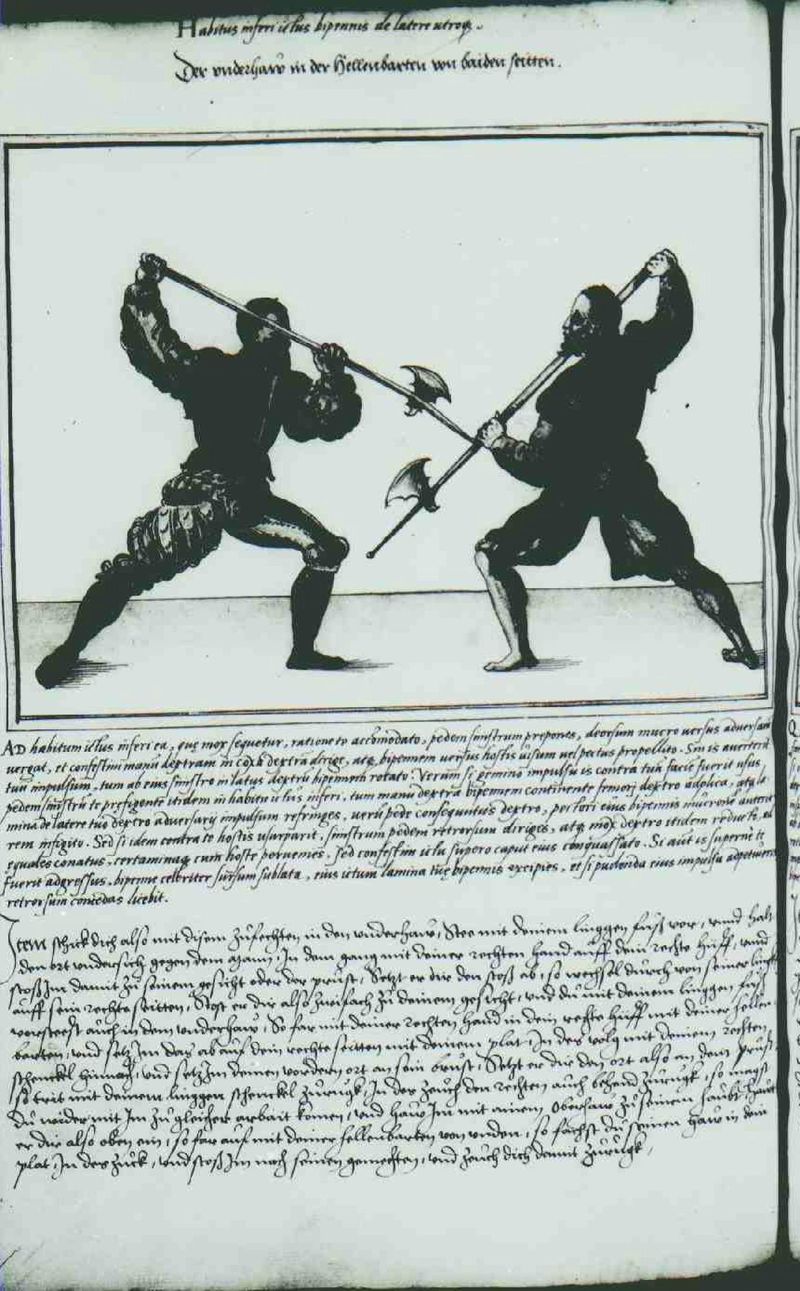 Habitus inferi ictus bipennis de latere utroq.
Der underhauw in der Hellenbarten von baiden seitten.
AD habitum ictus inferi ea, quę mox sequetur, ratione te accomodato, pedem sinistrum prepones, deorsum mucro versus adversarium
vergat, et confestim manu dextram in coxā dextrā dirige, atq bipennem versus hostis visum vel pectus propellito. Sin is averterit
tuū impulsum, tum ab eius sinistro in latus dextrū bipennem rotato. Verum si gemino impulsu is contra tuā faciē fuerit usus,
pedem sinistrū te prefigente itidem in habitu ictus inferi, tum manu dextra bipennem continente femori dextro adplica, atq la
mina de latere tuo dextro adversarii impulsum refringes, verū pede consequuto dextro, pectori eius bipennis mucronē anterio
rem infigito. Sed si idem contra te hostis usurparit, sinistrum pedem retrorsum diriges, atq mox dextro itidem reducto, ad
equales conatus, certaminaq cum hoste pervenies, sed confestim ictu supero caput eius conquassato. Si aut is superne te
fuerit adgressus, bipenne celeriter sursum sublata, eius ictum lamina tuę bipennis excipies, et si pudenda eius impulsu adpetiveris
retrorsum concedas licebit.
Item schick dich also mit disem zufechten in den underhauw, Stee mit deinem linggen fuß vor, unnd halt
den ort undersich gegen dem mann, In dem gang mit deiner rechten hand auff dein rechte hufft, unnd
stoß Im damit zu seinem gesicht oder der prust, Setzt er dir den stoß ab, so wechsel durch von seiner lingken
auff sein rechte seitten, Stost er dir also zwifach zu deinem gesicht, und du mit deinem linggen fuß
vorsteest auch in dem underhauw, So far mit deiner rechten hand in dein rechte hufft mit deiner hellen
barten, und setz Im das ab auf dein rechte seitten mit deinem plat, In des volg mit deinem rechten
schenckel hinnach, und setz Im deinen vordern ort an sein brust, Setzt er dir den ort also an dein prust,
so trit mit deinem linggen schenckel zurugk, In des zeuch den rechten auch behend zurugk, so magst
du wider mit Im zu gleicher arbait komen, und hauw Im mit ainem Oberhauw zu seinem haubt, Hauwt
er dir also oben ein, so far auf mit deiner hellenbarten von unden, so fachst du seinen hauw in dein
plat, In des zuck, und stoß Im nach seinen gemechten, und zeuch dich damit zurugk,